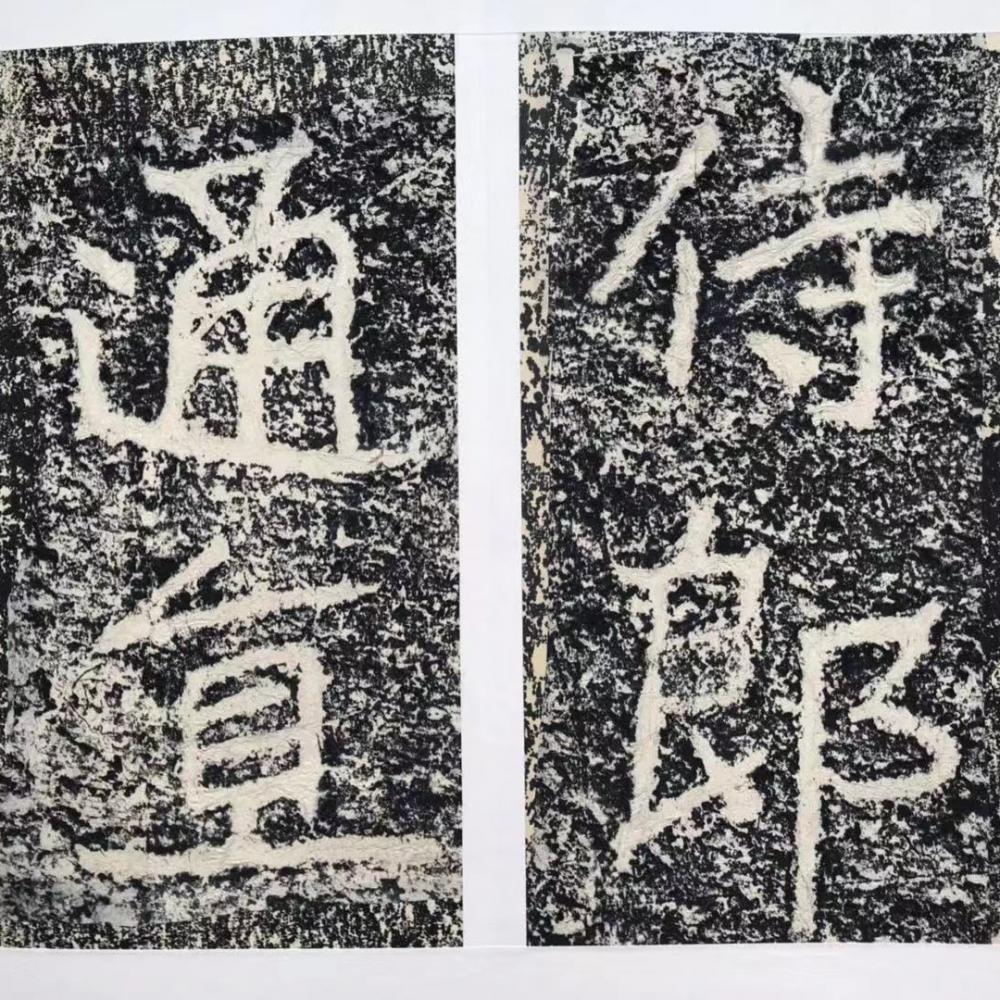 侍郎
通直